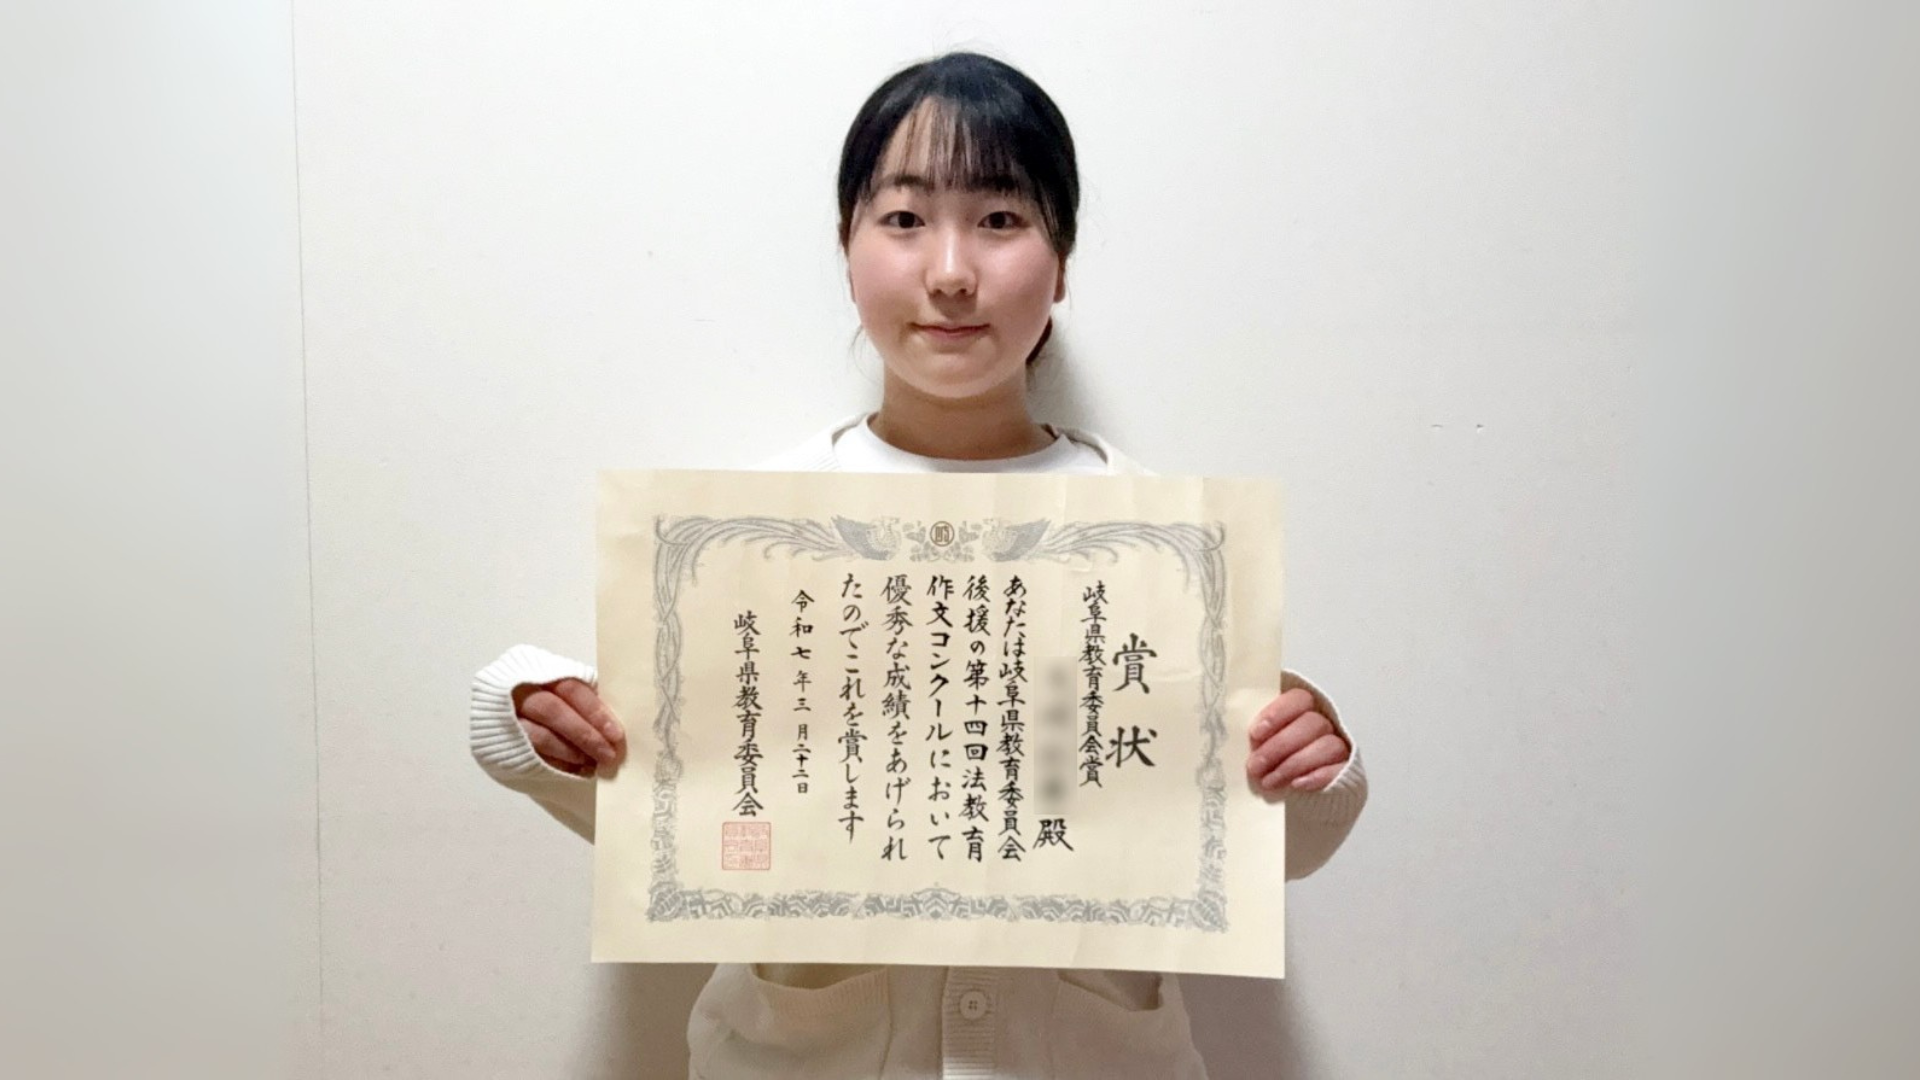 賞状
岐阜県教育委員会賞
殿
あなたは岐阜県教育委員会
後援の第十四回法教育
作文コンクールにおいて
優秀な成績をあげられ
たのでこれを賞します
令和七年三月二十二日
岐阜県教育委員会